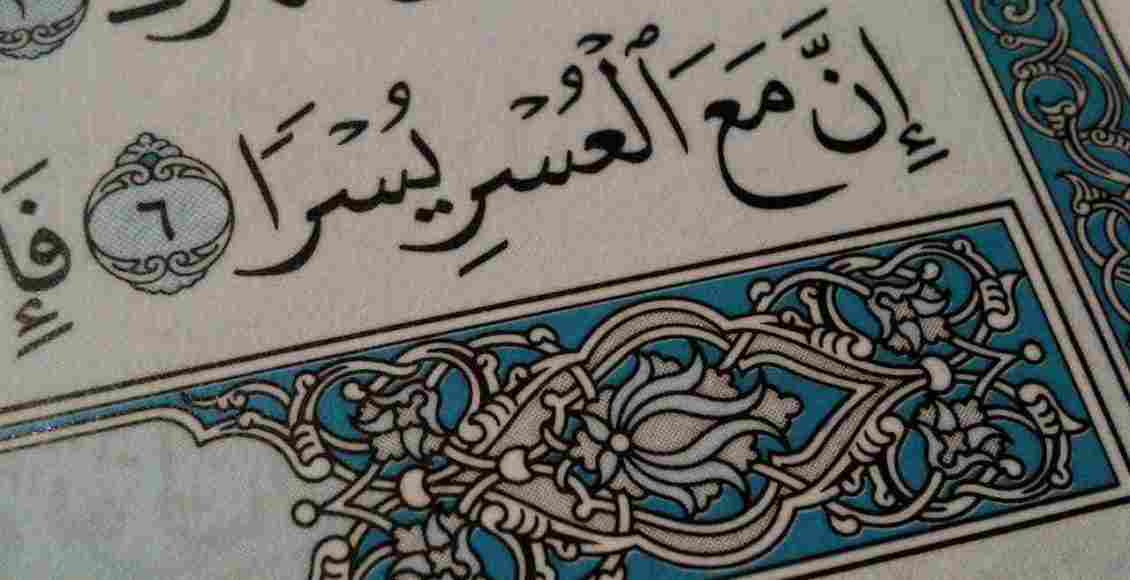 إِنَّ مَعَ ٱلْعُسْرِ يُسْرًا ٦ فَإِ